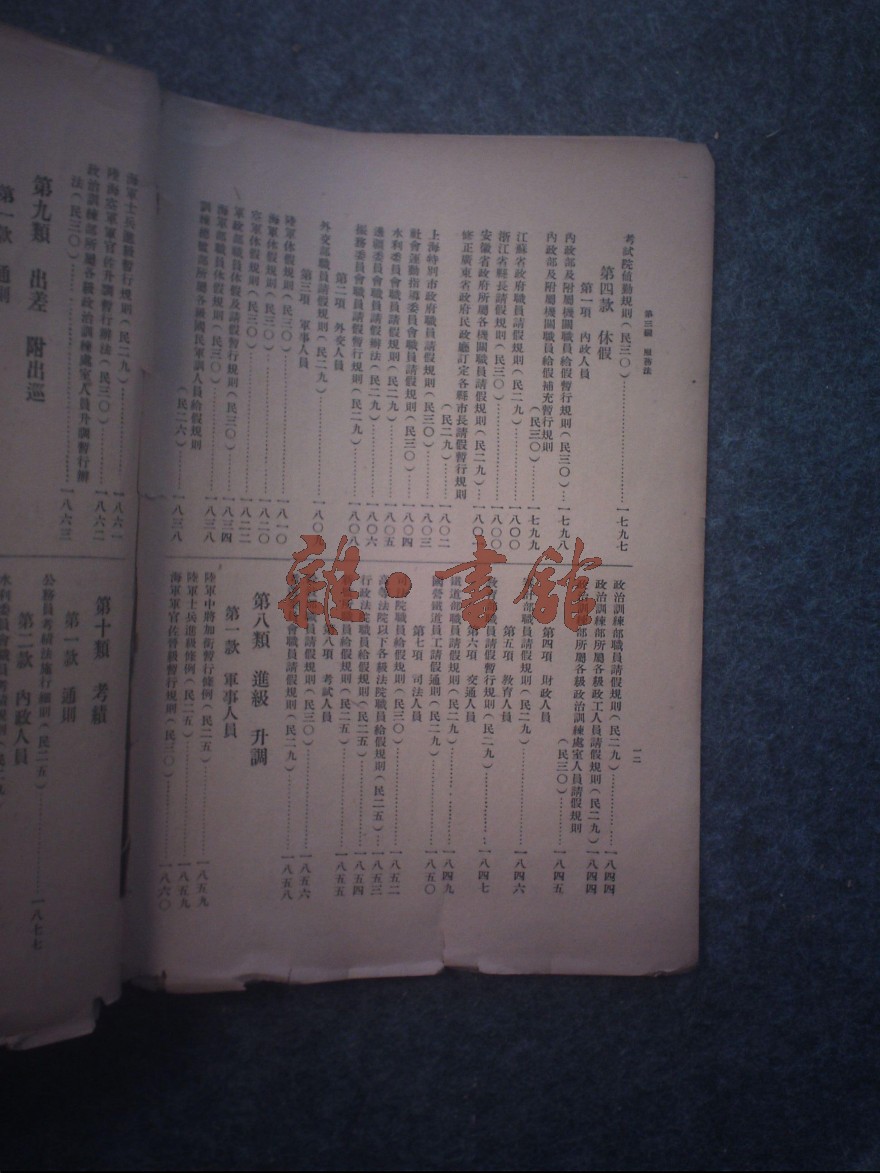 第三編 服務法
一二
考試院值勤規則(民三〇)……一七九七
第四款 休假
第一項 內政人員
內政部及附屬機關職員給假暫行規則(民三〇)…一七九八
內政部及附屬機關職員給假補充暫行規則
(民三〇)……一七九九
江蘇省政府職員請假規則(民二九)……一八〇〇
浙江省縣長請假規則(民三〇)……一八〇〇
安徽省政府所屬各機關職員請假規則(民二九)…一八〇
修正廣東省政府民政廳訂定各縣市長請假暫行規則
(民二九)……一八〇二
上海特別市政府職員請假規則(民三〇)……一八〇三
社會運動指導委員會職員請假規則(民三〇)……一八〇四
水利委員會職員請假規則(民二九)……一八〇五
邊疆委員會職員請假辦法(民二九)……一八〇六
振務委員會職員請假暫行規則(民二九)……一八〇八
第二項 外交人員
外交部職員請假規則(民二九)……一八〇
第三項 軍事人員
陸軍休假規則(民三〇)……一八一〇
海軍休假規則(民三〇)……一八二〇
空軍休假規則(民三〇)……一八二二
軍政部職員休假及請假暫行規則(民三〇)……一八三四
海軍部職員休假規則(民三〇)……一八三八
訓練總監部所屬各級國民軍訓人員給假規則
(民二六)……一八三八
政治訓練部職員請假規則(民二九)……一八四四
政治訓練部所屬各級政工人員請假規則(民二九)一八四四
政治訓練部所屬各級政治訓練處室人員請假規則
(民三〇)……一八四五
第四項 財政人員
部職員請假規則(民二九)……一八四六
第五項 教育人員
教育職員請假暫行規則(民二九)……一八四七
第六項 交通人員
鐵道部職員請假規則(民二九)……一八四九
國營鐵道員工請假通則(民二九)……一八五〇
第七項 司法人員
司法院職員給假規則(民三〇)……一八五二
高等法院以下各級法院職員給假規則(民二五)…一八五三
行政法院職員給假規則(民二五)……一八五四
職員給假規則(民二五)……一八五五
第八項 考試人員
職員請假規則(民三〇)……一八五六
會職員請假規則(民二九)……一八五八
第八類 進級 升調
第一款 軍事人員
陸軍中將加銜暫行條例(民二五)……一八五九
陸軍士兵進級條例(民二五)……一八五九
海軍軍官佐晉級暫行規則(民三〇)……一八六〇
海軍士兵進級暫行規則(民二九)……一八六一
陸海空軍軍官佐升調暫行辦法(民三〇)……一八六二
政治訓練部所屬各級政治訓練處室人員升調暫行辦
法(民三〇)……一八六三
第九類 出差 附出巡
第一款 通則
第十類 考績
第一款 通則
公務員考績法施行細則(民二五)……一八七七
第二款 內政人員
水利委員會職員考績規則(民二九
雜·書館